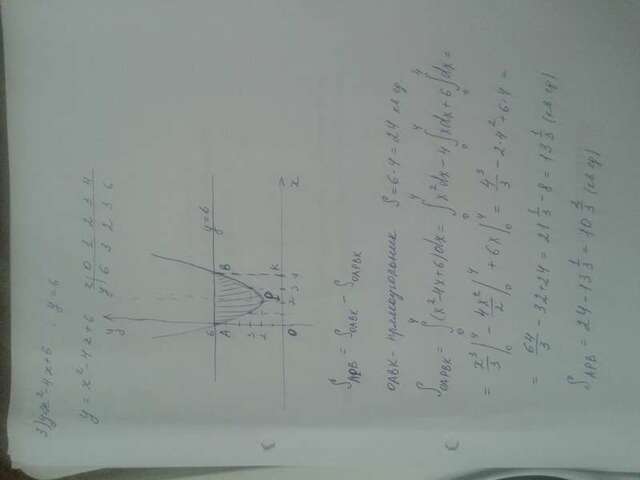 3) y=x²-4x+6 ; y=6
y = x²-4x+6
x | 0 1 2 3 4
y | 6 3 2 3 6
y
y=6
6
A
B
3
2
P
O
1 2 3 4
K
x
S_APB = S_OABK - S_OAPBK
OABK - прямоугольник S=6·4=24 кв.ед.
S_OAPBK = ∫₀⁴(x²-4x+6)dx = ∫₀⁴x²dx - 4∫₀⁴xdx + 6∫₀⁴dx =
= x³/3|₀⁴ - 4x²/2|₀⁴ + 6x|₀⁴ = 4³/3 - 2·4² + 6·4 =
= 64/3 - 32+24 = 21 1/3 - 8 = 13 1/3 (кв.ед)
S_APB = 24 - 13 1/3 = 10 2/3 (кв.ед)